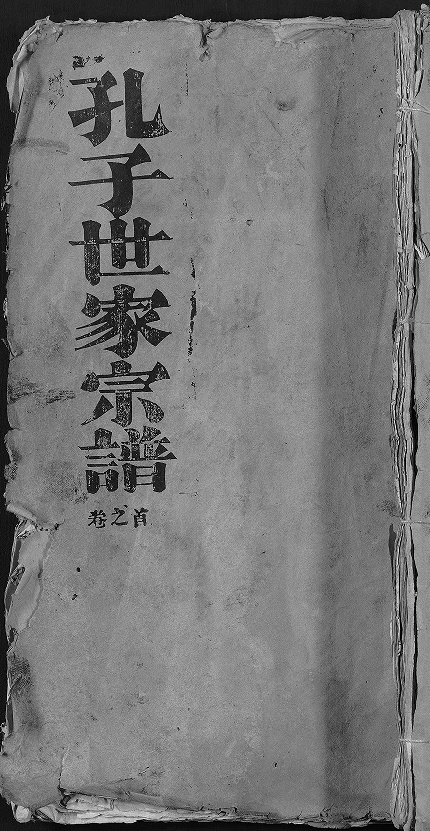 孔子世家宗譜
卷之首